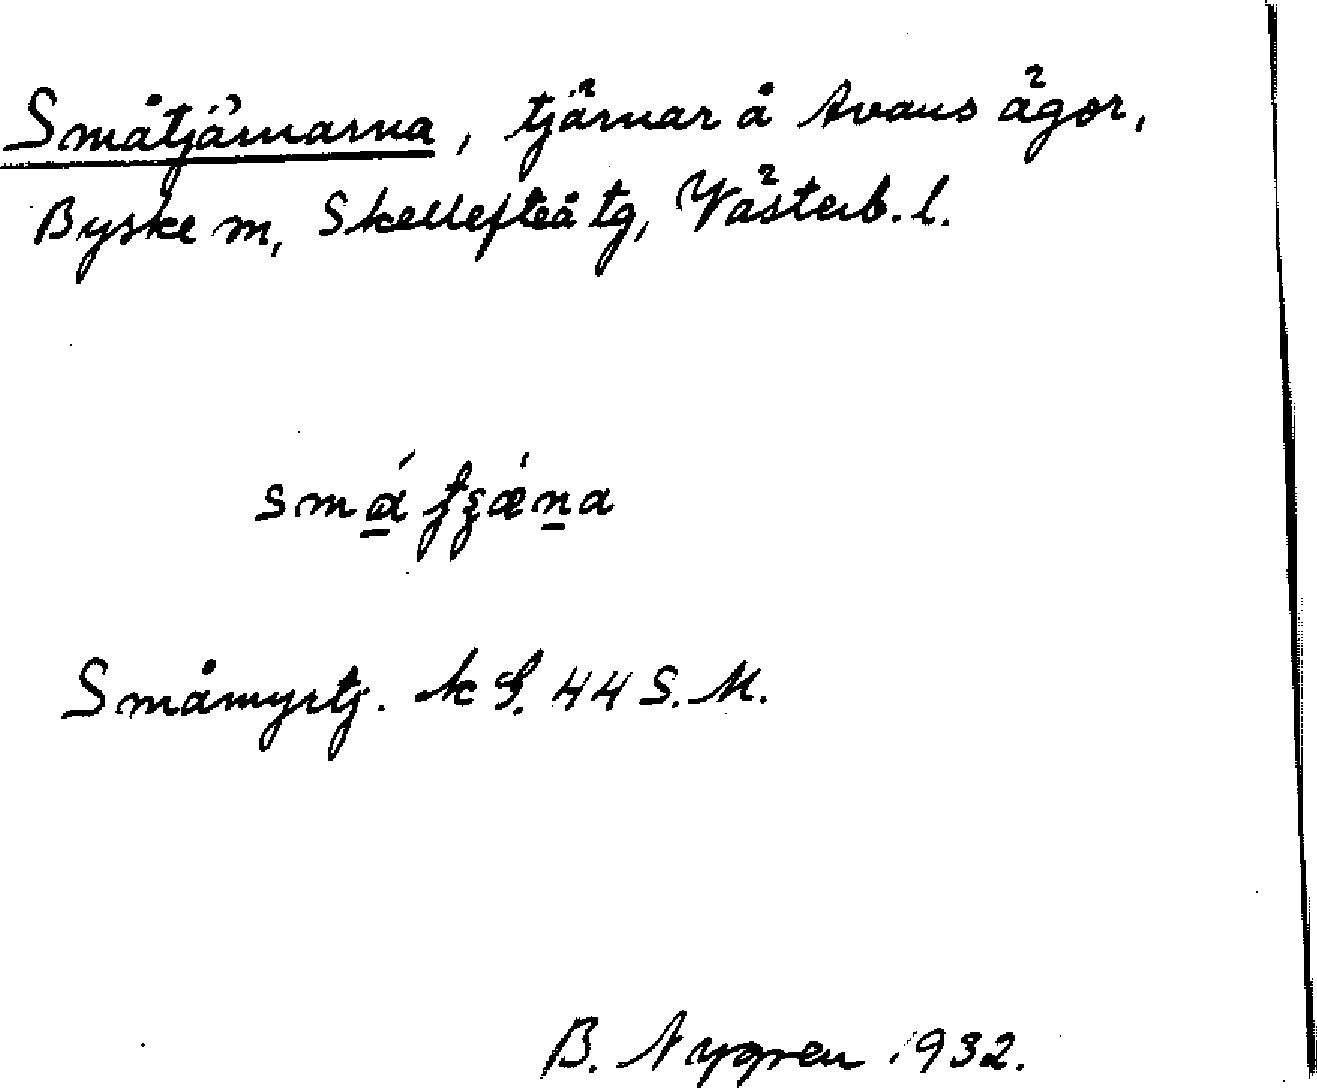 Småtjärnarna, tjärnar å Avans ägor,
Byske sn, Skellefteå tg, Västerb. l.
smɑ́ tʂǽṉa
Småmyrtj. k S. 44 S. M.
B. Nygren 1932.